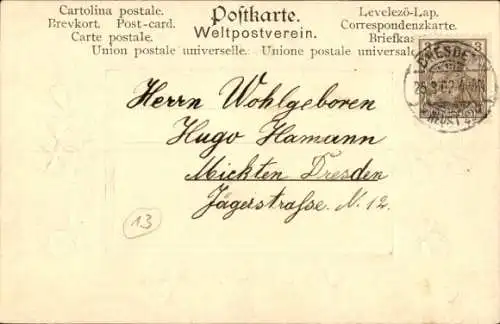 Cartolina postale.
Brevkort. Post-card.
Carte postale.
Postkarte.
Weltpostverein.
Levelezö-Lap.
Correspondenzkarte.
Briefka
Union postale universelle. Unione postale universal
3 3
DRESDE
Herrn Wohlgeboren
Hugo Hamann
Mickten Dresden
Jägerstraße. N. 12.
13